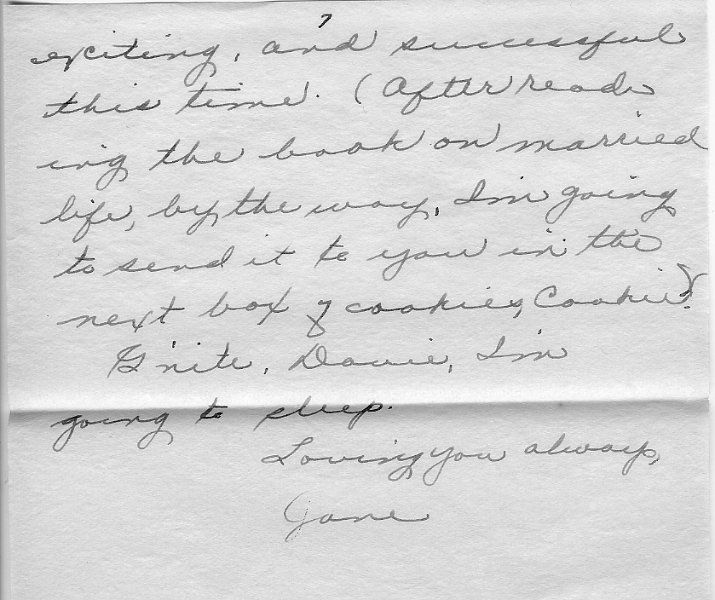 7
exciting, and successful
this time. (After read-
ing the book on married
life, by the way, I'm going
to send it to you in the
next box of cookies, Cookie)!
G'nite, Davie, I'm
going to sleep.
Loving you always,
Jane